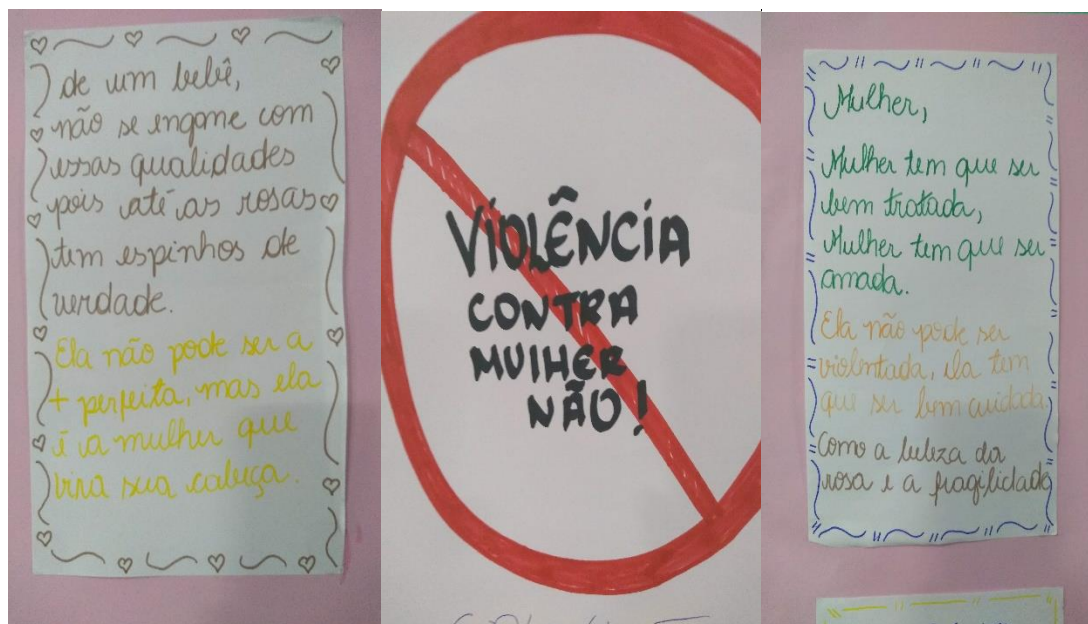 de um bebê,
não se engane com
essas qualidades
pois até as rosas
tem espinhos de
verdade.
Ela não pode ser a
+ perfeita, mas ela
é a mulher que
vira sua cabeça.
VIOLÊNCIA
CONTRA
MULHER
NÃO!
Mulher,
Mulher tem que ser
bem tratada,
Mulher tem que ser
amada.
Ela não pode ser
violentada, ela tem
que ser bem cuidada
como a beleza da
rosa e a fragilidade